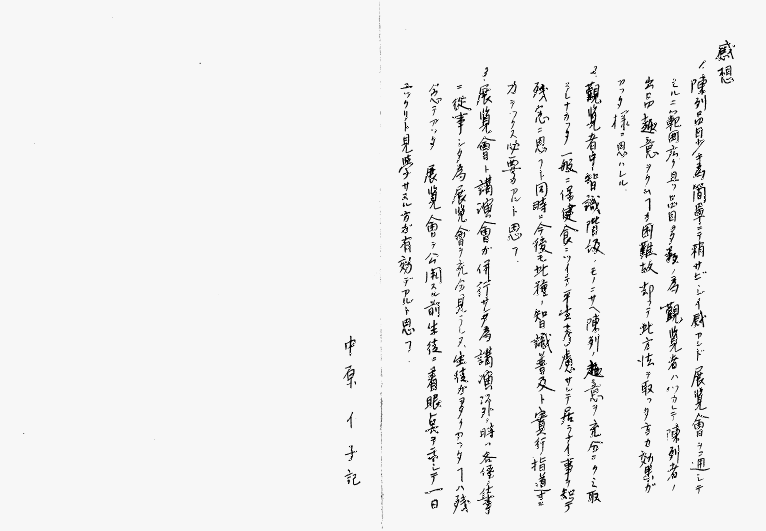 感想
1. 陳列品目少ク簡單ニテ稍サビシイ感アレド展覽會ヲ通シテ
ミルニ範囲広ク且ツ品目多数ノ為觀覽者ハツカレテ陳列者ノ
出品趣意ヲクム困難故却ッテ此方法ヲ取ッタ方カ効果ガ
アッタ様ニ思ハレル.
2. 觀覽者中智識階級ノモノニサヘ陳列ノ趣意ヲ充分ニクミ取
レナカッタ一般ニ保健食ニツイテ平生考慮サレテ居ラナイ事ヲ知テ
残念ニ思フト同時ニ今後モ此種ノ智識普及ト實行指導ニ
力ヲツクス必要ガアルト思フ.
3. 展覽會ト講演會ガ併行サレタ為講演以外ノ時ハ各係ノ仕事
ニ従事シタ為展覽會ヲ充分見ラレズ、生徒ガ多カッタ一ハ残
念デアッタ 展覽會ヲ公開スル前生徒ニ着眼点ヲ示シテ一日
ユックリト見学サスル方が有効デアルト思フ.
中原イ子記